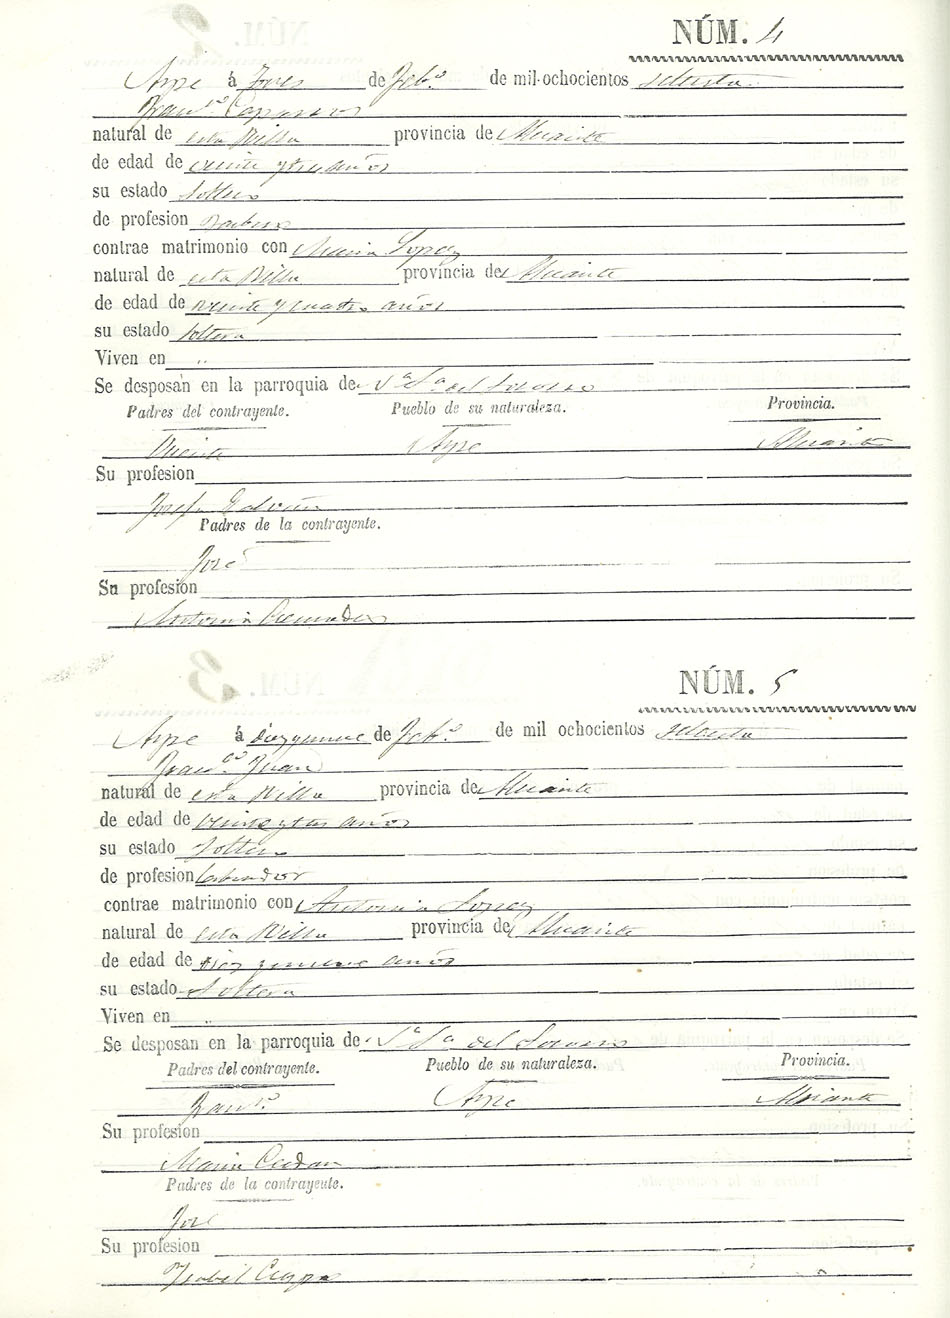 NÚM. 4
Aspe á tres de Feb.º de mil-ochocientos setenta
Fran.co Caparros
natural de esta Villa provincia de Alicante
de edad de veinte y tres años
su estado soltero
de profesion
contrae matrimonio con Maria Lopez
natural de esta Villa provincia de Alicante
de edad de veinte y cuatro años
su estado soltera
Viven en "
Se desposan en la parroquia de N.ª S.ª del Socorro
Padres del contrayente. Pueblo de su naturaleza. Provincia.
Vicente Aspe Alicante
Su profesion
Josefa
Padres de la contrayente.
José
Su profesion
Antonia Cremades
NÚM. 5
Aspe á diez y nueve de Feb.º de mil ochocientos setenta
Fran.co Juan
natural de esta Villa provincia de Alicante
de edad de veinte y tres años
su estado soltero
de profesion labrador
contrae matrimonio con Antonia Lopez
natural de esta Villa provincia de Alicante
de edad de diez y nueve años
su estado soltera
Viven en "
Se desposan en la parroquia de N.ª S.ª del Socorro
Padres del contrayente. Pueblo de su naturaleza. Provincia.
Fran.co Aspe Alicante
Su profesion
Maria
Padres de la contrayente.
José
Su profesion
Isabel